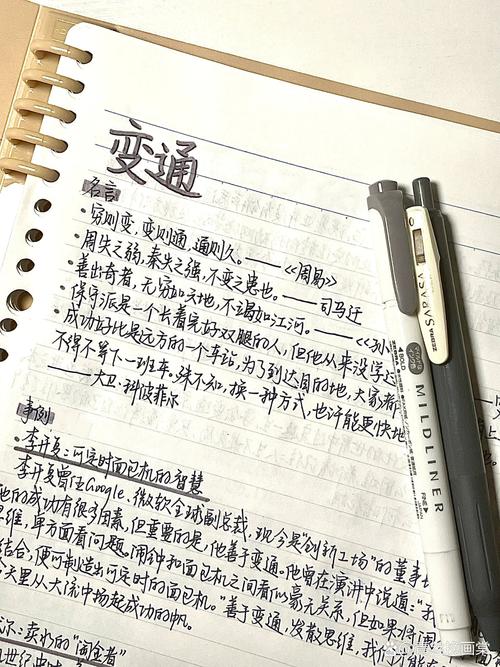 变通
名言
·穷则变,变则通,通则久。——《周易》
·周失之弱,秦失之强,不变之患也。——司马迁
·善出奇者,无穷如天地,不竭如江河。——《孙
·保守派是一个长着完好双腿的人,但他从来没学过
·成功好比是远方的一个车站,为了到达目的地,大家都
不得不等下一班车。殊不知,换一种方式,也许能更快地
——大卫·科波菲尔
事例
·李开复:可定时面包机的智慧
李开复曾任Google、微软全球副总裁,现今是"创新工场"的董事
他的成功有很多因素,但重要的是,他善于变通。他曾在演讲中说道:"我
思维,单方面看问题。闹钟和面包机之间看似毫无关系,但如果将闹
结合,便可制造出可定时的面包机。"善于变通,发散思维,我们
今天里从大流中扬起成功的帆。
尔:卖水的"淘金者"
SARASA
MILDLINER